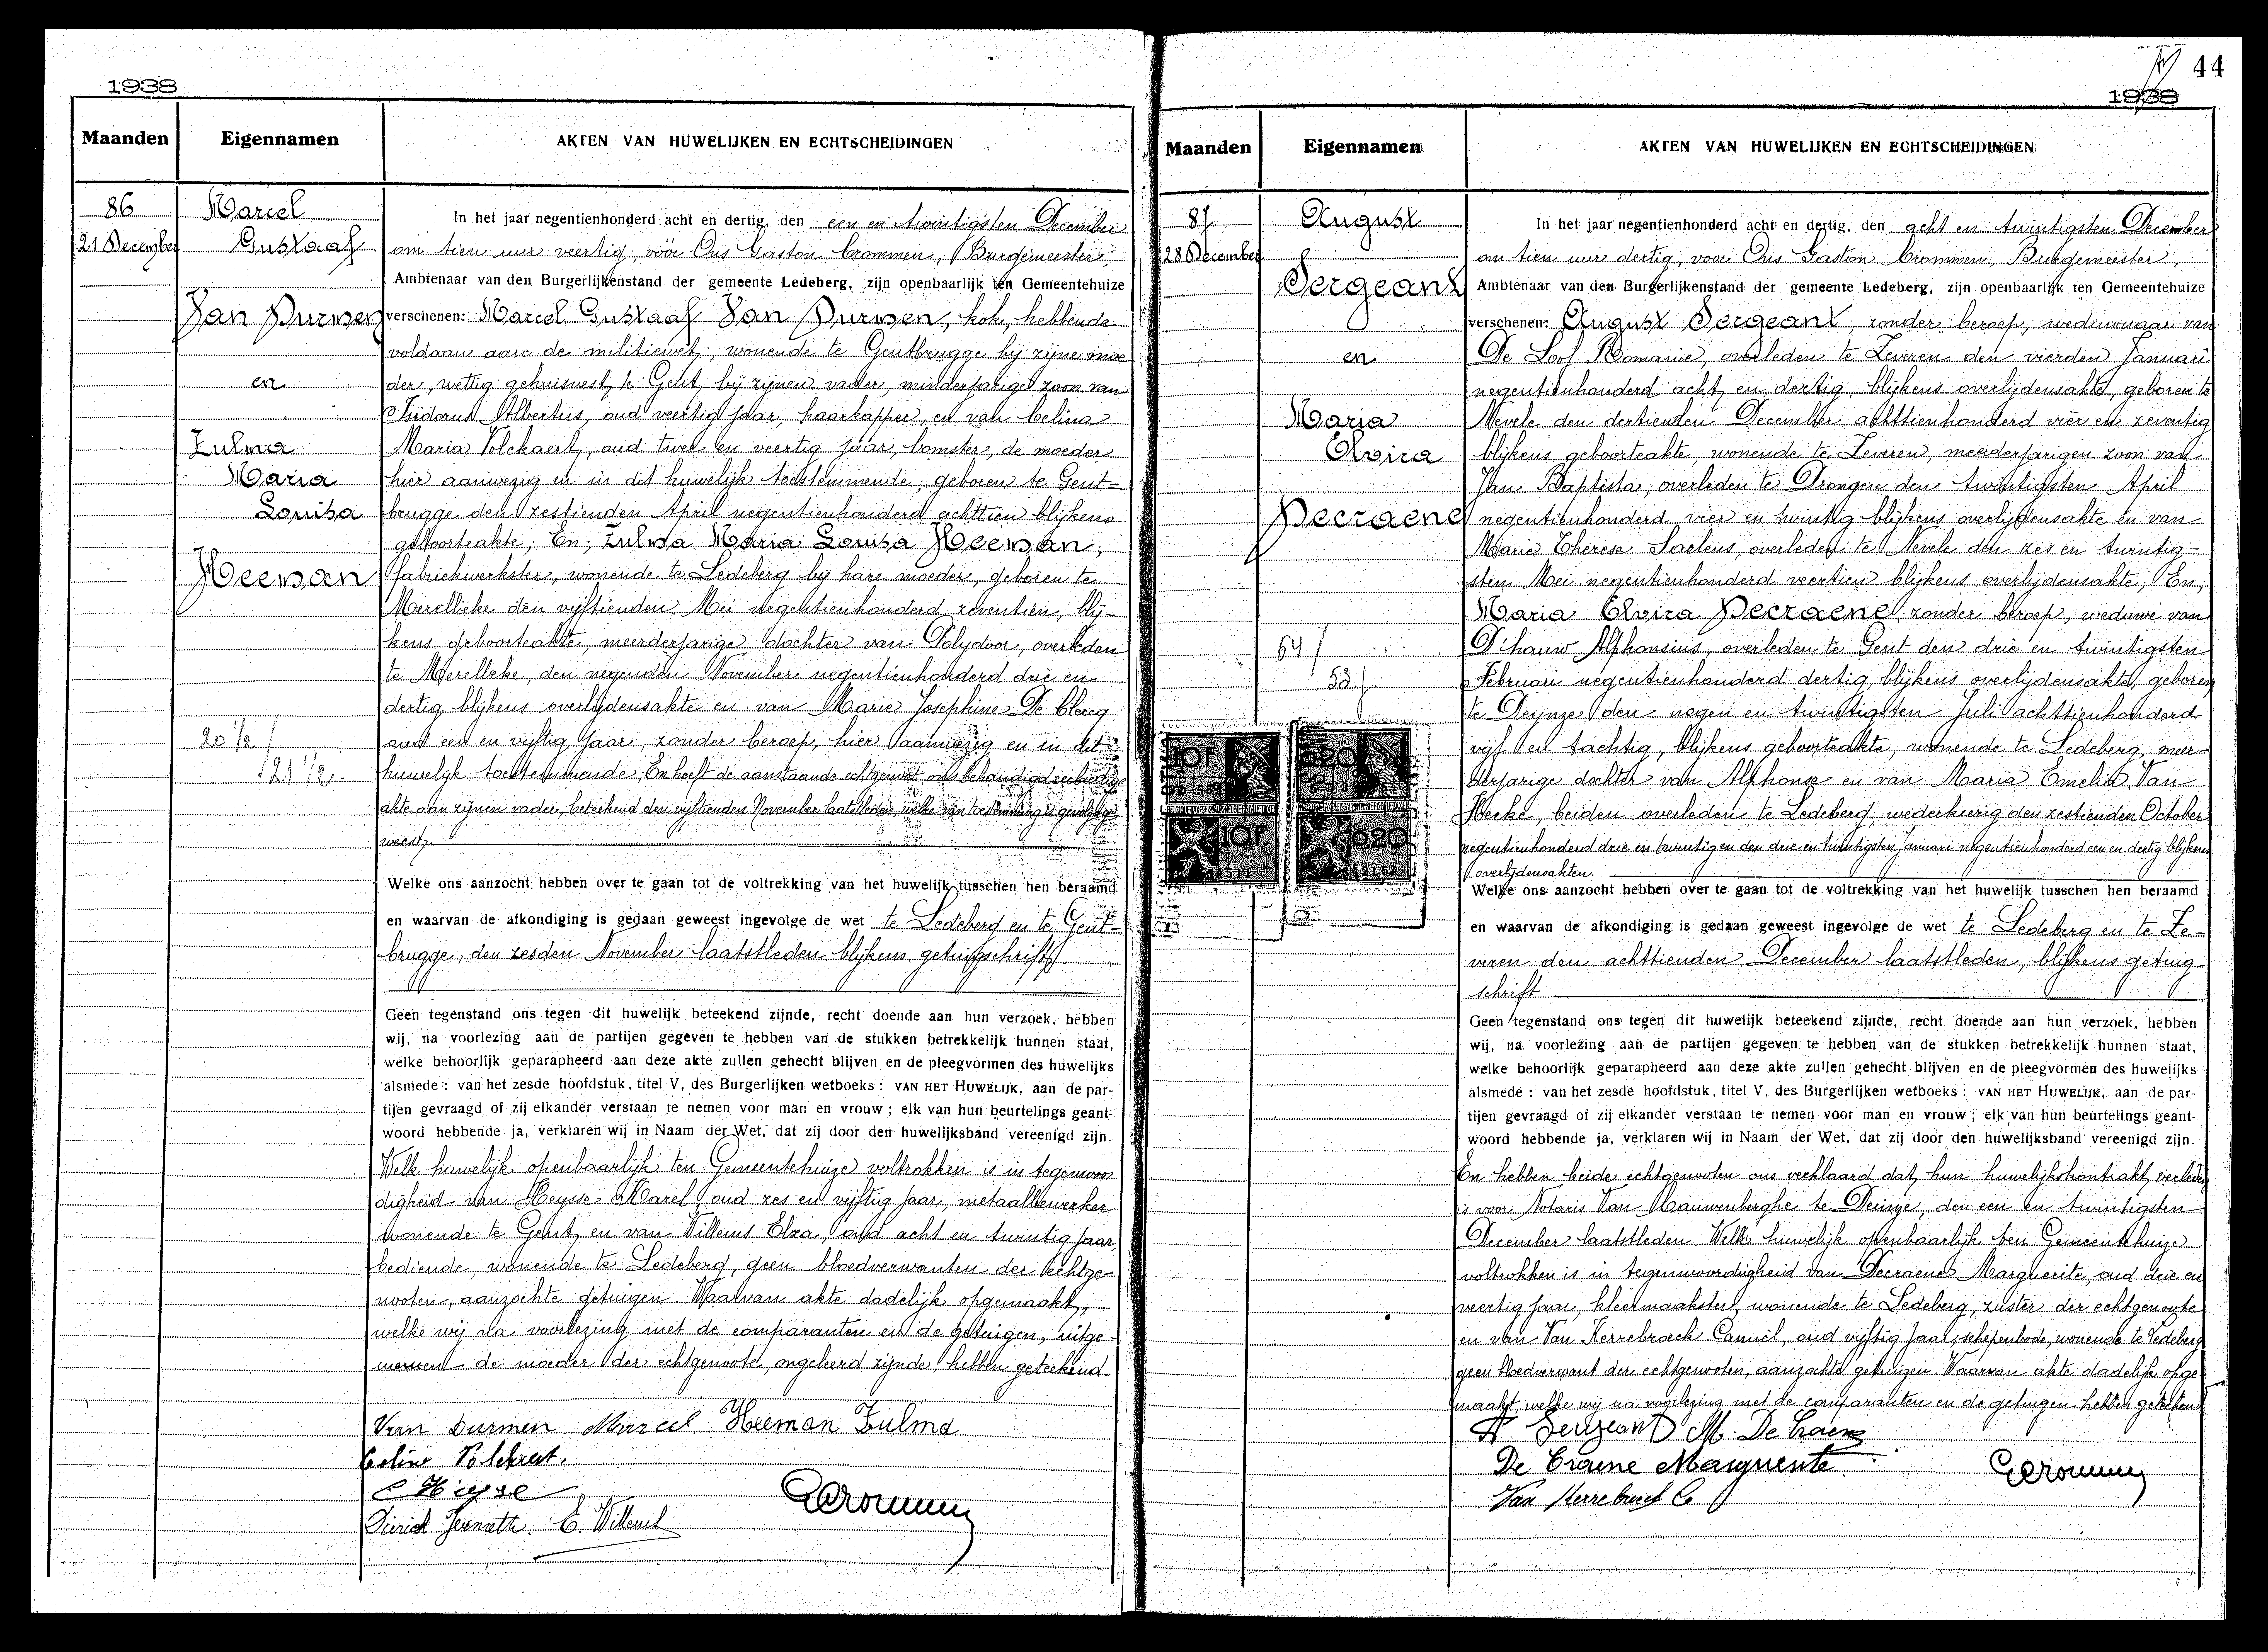 1938
Maanden
Eigennamen
AKTEN VAN HUWELIJKEN EN ECHTSCHEIDINGEN
86
21 December
Marcel
Gustaaf
Van Durmen
en
Zulma
Maria
Louisa
Heeman
20 1/2
21 1/2
In het jaar negentienhonderd acht en dertig, den een en twintigsten December
om tien uur veertig, vóór Ons Gaston Crommen, Burgemeester,
Ambtenaar van den Burgerlijkenstand der gemeente Ledeberg, zijn openbaarlijk ten Gemeentehuize
verschenen: Marcel Gustaaf Van Durmen, kok, hebbende
voldaan aan de militiewet, wonende te Gentbrugge bij zijne moe
der, wettig gehuisvest te Gent bij zijnen vader, minderjarige zoon van
Isidorus Albertus, oud veertig jaar, haarkapper, en van Celina
Maria Volckaert, oud twee en veertig jaar, bomster, de moeder
hier aanwezig en in dit huwelijk toestemmende; geboren te Gent-
brugge den zestienden April negentienhonderd achttien blijkens
geboorteakte; En, Zulma Maria Louisa Heeman,
fabriekwerkster, wonende te Ledeberg bij hare moeder, geboren te
Merelbeke den vijftienden Mei negentienhonderd zeventien, blij-
kens geboorteakte, meerderjarige dochter van Polydoor, overleden
te Merelbeke, den negenden November negentienhonderd drie en
dertig blijkens overlijdensakte en van Marie Josephine De Clercq
oud een en vijftig jaar, zonder beroep, hier aanwezig en in dit
huwelijk toestemmende; En heeft de aanstaande echtgenoot ons behandigd eerbiedige
akte aan zijnen vader, beteekend den vijftienden November laatstleden, welke van toestemming is gevolgd ge
weest
Welke ons aanzocht hebben over te gaan tot de voltrekking van het huwelijk tusschen hen beraamd
en waarvan de afkondiging is gedaan geweest ingevolge de wet te Ledeberg en te Gent-
brugge, den zesden November laatstleden blijkens getuigschrift
Geen tegenstand ons tegen dit huwelijk beteekend zijnde, recht doende aan hun verzoek, hebben
wij, na voorlezing aan de partijen gegeven te hebben van de stukken betrekkelijk hunnen staat,
welke behoorlijk geparapheerd aan deze akte zullen gehecht blijven en de pleegvormen des huwelijks
alsmede : van het zesde hoofdstuk, titel V, des Burgerlijken wetboeks : VAN HET HUWELIJK, aan de par-
tijen gevraagd of zij elkander verstaan te nemen voor man en vrouw ; elk van hun beurtelings geant-
woord hebbende ja, verklaren wij in Naam der Wet, dat zij door den huwelijksband vereenigd zijn.
Welk huwelijk openbaarlijk ten Gemeentehuize voltrokken is in tegenwoor
digheid van Heysse Karel, oud zes en vijftig jaar, metaalbewerker
wonende te Gent, en van Willems Elza, oud acht en twintig jaar,
bediende, wonende te Ledeberg, geen bloedverwanten der echtge-
nooten, aanzochte getuigen. Waarvan akte dadelijk opgemaakt,
welke wij na voorlezing met de comparanten en de getuigen, uitge-
nomen de moeder der echtgenoote, ongeleerd zijnde, hebben geteekend.
Van Durmen Marcel Heeman Zulma
Celine Volckaert.
Heysse
E. Willems
GCrommen
44
1938
Maanden
Eigennamen
AKTEN VAN HUWELIJKEN EN ECHTSCHEIDINGEN
87
28 December
August
Sergeant
en
Maria
Elvira
Decraene
64
53
10F
020
10F
020
In het jaar negentienhonderd acht en dertig, den acht en twintigsten December
om tien uur dertig, voor Ons Gaston Crommen, Burgemeester,
Ambtenaar van den Burgerlijkenstand der gemeente Ledeberg, zijn openbaarlijk ten Gemeentehuize
verschenen: August Sergeant, zonder beroep, weduwnaar van
De Loof Romanie, overleden te Zeveren den vierden Januari
negentienhonderd acht en dertig, blijkens overlijdensakte, geboren te
Nevele den dertienden December achttienhonderd vier en zeventig
blijkens geboorteakte, wonende te Zeveren, meerderjarigen zoon van
Jan Baptista, overleden te Drongen den twintigsten April
negentienhonderd vier en twintig blijkens overlijdensakte en van
Marie Therese Saelens, overleden te Nevele den zes en twintig-
sten Mei negentienhonderd veertien blijkens overlijdensakte, En,
Maria Elvira Decraene, zonder beroep, weduwe van
D'hauw Alphonsius, overleden te Gent den drie en twintigsten
Februari negentienhonderd dertig, blijkens overlijdensakte, geboren
te Deynze den negen en twintigsten Juli achttienhonderd
vijf en tachtig, blijkens geboorteakte, wonende te Ledeberg, meer-
derjarige dochter van Alphonse en van Maria Emelia Van
Hecke, beiden overleden te Ledeberg, wederkeerig den zestienden October
negentienhonderd drie en twintig en den drie en twintigsten Januari negentienhonderd een en dertig blijkens
overlijdensakten.
Welke ons aanzocht hebben over te gaan tot de voltrekking van het huwelijk tusschen hen beraamd
en waarvan de afkondiging is gedaan geweest ingevolge de wet te Ledeberg en te Ze-
veren den achttienden December laatstleden, blijkens getuig
schrift
Geen tegenstand ons tegen dit huwelijk beteekend zijnde, recht doende aan hun verzoek, hebben
wij, na voorlezing aan de partijen gegeven te hebben van de stukken betrekkelijk hunnen staat,
welke behoorlijk geparapheerd aan deze akte zullen gehecht blijven en de pleegvormen des huwelijks
alsmede : van het zesde hoofdstuk, titel V, des Burgerlijken wetboeks : VAN HET HUWELIJK, aan de par-
tijen gevraagd of zij elkander verstaan te nemen voor man en vrouw ; elk van hun beurtelings geant-
woord hebbende ja, verklaren wij in Naam der Wet, dat zij door den huwelijksband vereenigd zijn.
En hebben beide echtgenooten ons verklaard dat hun huwelijkskontrakt verleden
is voor Notaris Van Wauwenberghe te Deinze, den een en twintigsten
December laatstleden Welk huwelijk openbaarlijk ten Gemeentehuize
voltrokken is in tegenwoordigheid van Decraene Marguerite, oud drie en
veertig jaar, kleermaakster, wonende te Ledeberg, zuster der echtgenoote
en van Van Kerrebroeck Camiel, oud vijftig jaar, schepenbode, wonende te Ledeberg
geen bloedverwant der echtgenooten, aanzochte getuigen Waarvan akte dadelijk opge
maakt, welke wij na voorlezing met de comparanten en de getuigen hebben geteekend
A Sergeant M. De Craene
De Craene Marguerite
Van Kerrebroeck C
GCrommen